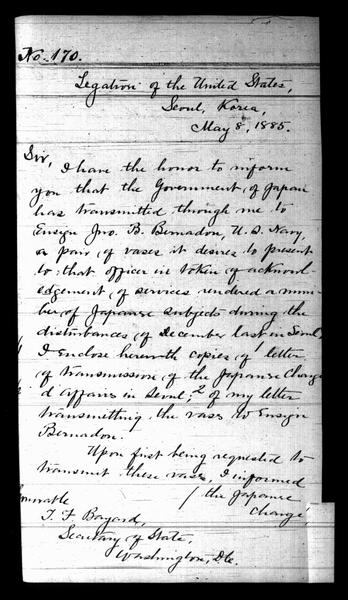 No. 170.
Legation of the United States,
Seoul, Korea,
May 8, 1885.
Sir,
I have the honor to inform
you that the Government of Japan
has transmitted through me to
Ensign Jno. B. Bernadon, U. S. Navy,
a pair of vases it desires to present
to that officer in token of acknowl-
edgement of services rendered a num-
ber of Japanese subjects during the
disturbances of December last in Seoul.
I enclose herewith copies of 1 letter
of transmission of the Japanese Chargé
d'Affaires in Seoul; 2 of my letter
transmitting the vases to Ensign
Bernadon.
Upon first being requested to
transmit these vases, I informed
the Japanese
Chargé,
T. F. Bayard,
Secretary of State,
Washington, D.C.